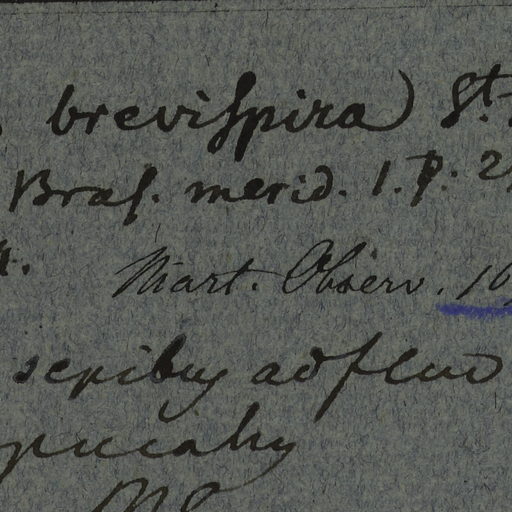 brevispira) St.
Bras. merid. 1. p. 2
Mart. Observ. 16
sepibus ad fluv